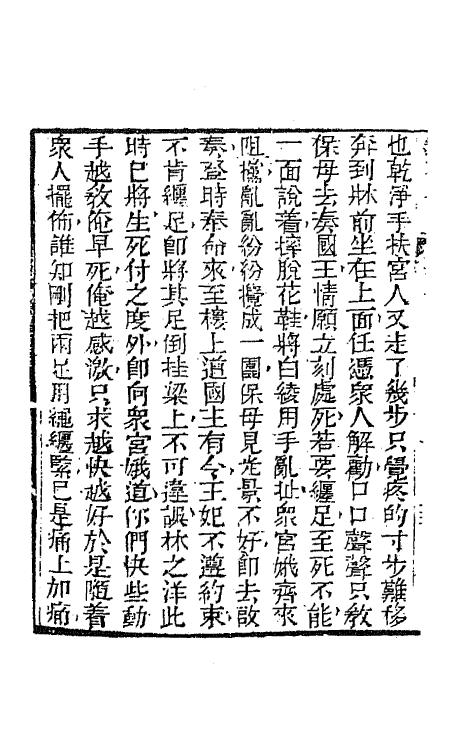 也乾淨手扶宮人又走了幾步只覺疼的寸步難移
奔到牀前坐在上面任憑衆人解勸口口聲聲只教
保母去奏國王情願立刻處死若要纏足至死不能
一面說着摔脫花鞋將白綾用手亂扯衆宮娥齊來
阻攔亂亂紛紛攪成一團保母見光景不好卽去啟
奏登時奉命來至樓上道國主有令王妃不遵約束
不肯纏足卽將其足倒挂梁上不可違誤林之洋此
時已將生死付之度外卽向衆宮娥道你們快些動
手越教俺早死俺越感激只求越快越好於是隨着
衆人擺佈誰知剛把兩足用繩纏緊已是痛上加痛